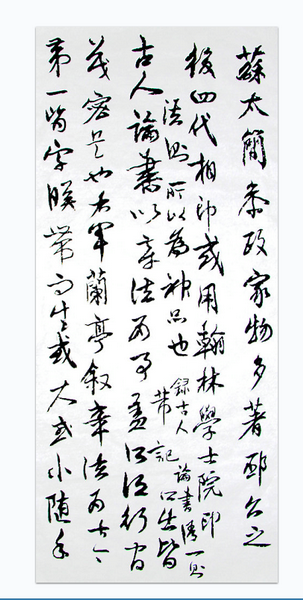 蘇太簡參政家物多著邳公之
後四代相印或用翰林學士院印
法則所以為神品也
錄古人論書語一則
古人論書以章法為事蓋行間
茂密是也右軍蘭亭敘章法為古今
第一皆字映帶而生或大或小隨手